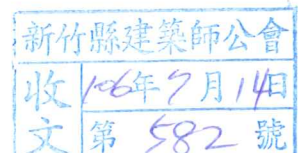 新竹縣建築師公會
收文
106年7月14日
第 582 號